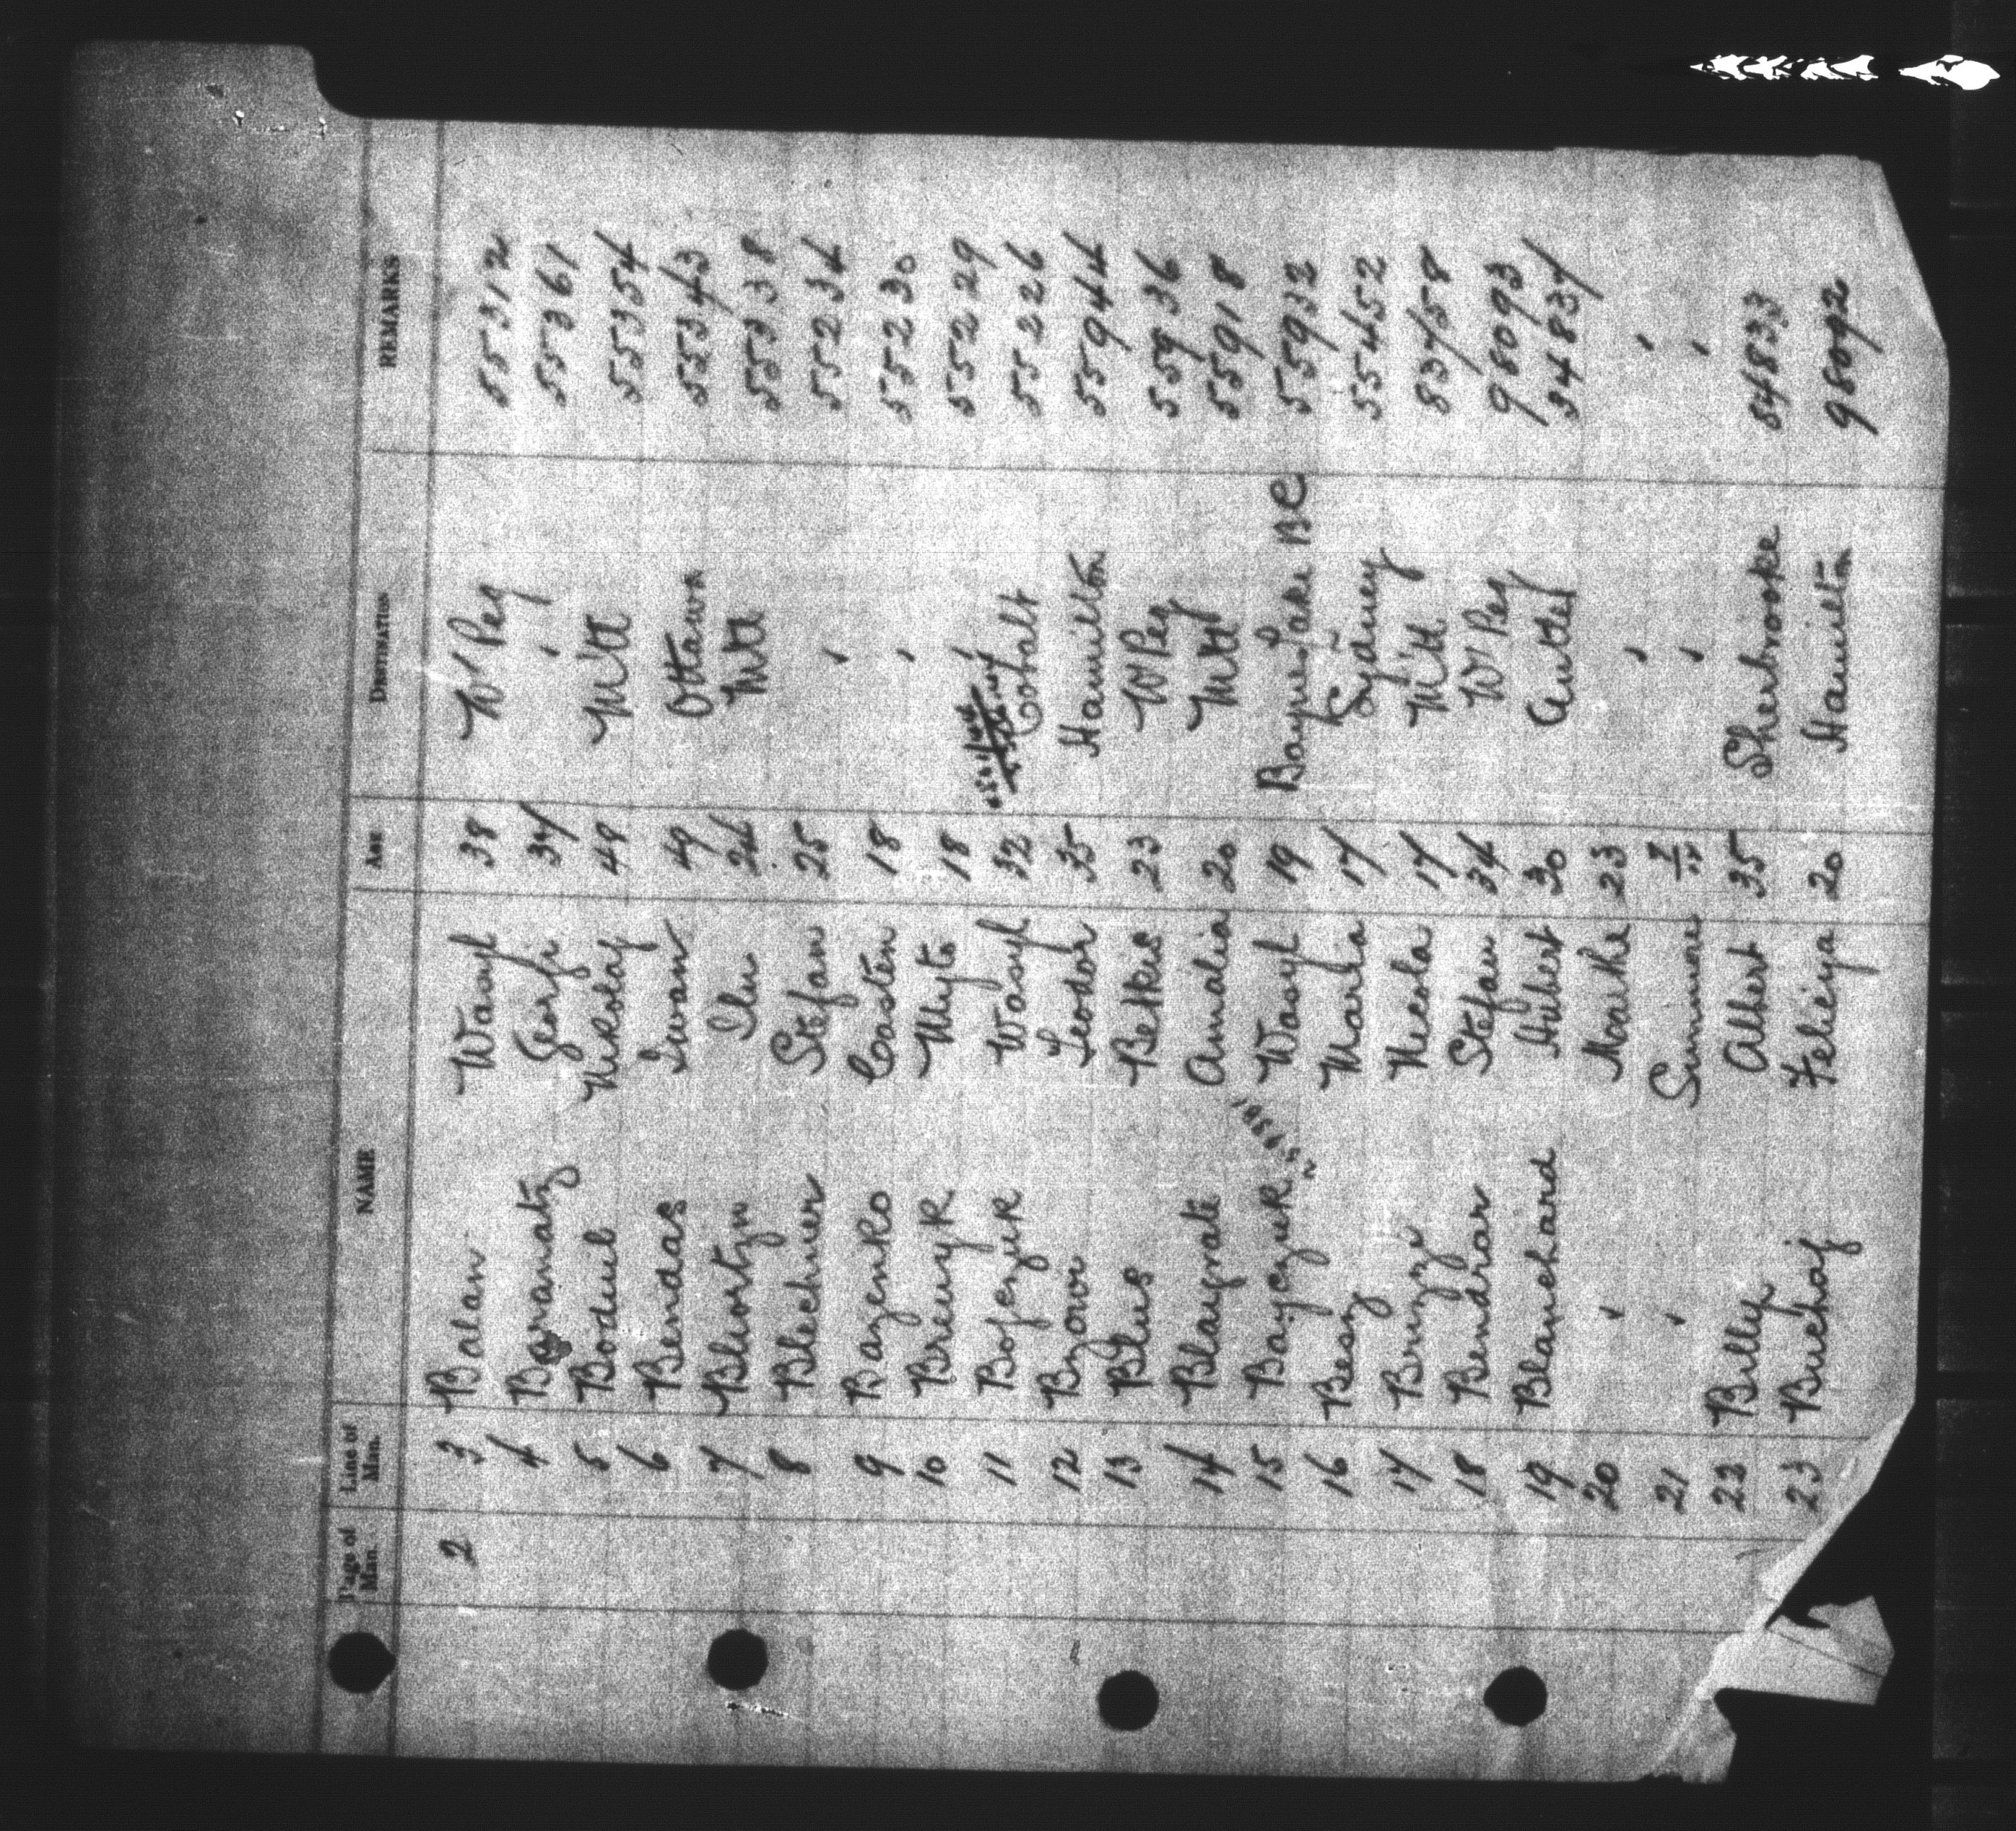 Page of Man. Line of Man. NAME AGE DESTINATION REMARKS
2 3 Balan Wasyl 38 W'Peg 55312
4 Georgi 37 " 55361
5 Bodeul Nikolaj 48 Mtl 55354
6 Bendas Iwan 49 Ottawa 55343
7 Bliortzu Ilu 26 Mtl 55338
8 Blechuer Stefan 25 " 55234
9 Bazenko Costen 18 " 55230
10 Breuyk Myto 18 55229
11 Bojczuk Wasyl 32 Cobalt 55226
12 Bzowi Leodor 35 Hamilton 55944
13 Blus Betkis 23 W'Peg 55936
14 Blaugrate Amalia 20 Mtl 55918
15 Bayczuk Wasyl 19 Bayne Lake BC 55932
16 Besz Maria 17 Sydney 55452
17 Bruzzi Nicola 17 Mtl 83758
18 Bendrar Stefan 34 W'Peg 98093
19 Blanchard Hubert 30 34837
20 " Marthe 23 " "
21 " Simone " "
22 Billy Albert 35 Sherbrooke 84833
23 Buchaj Felicya 20 Hamilton 98092